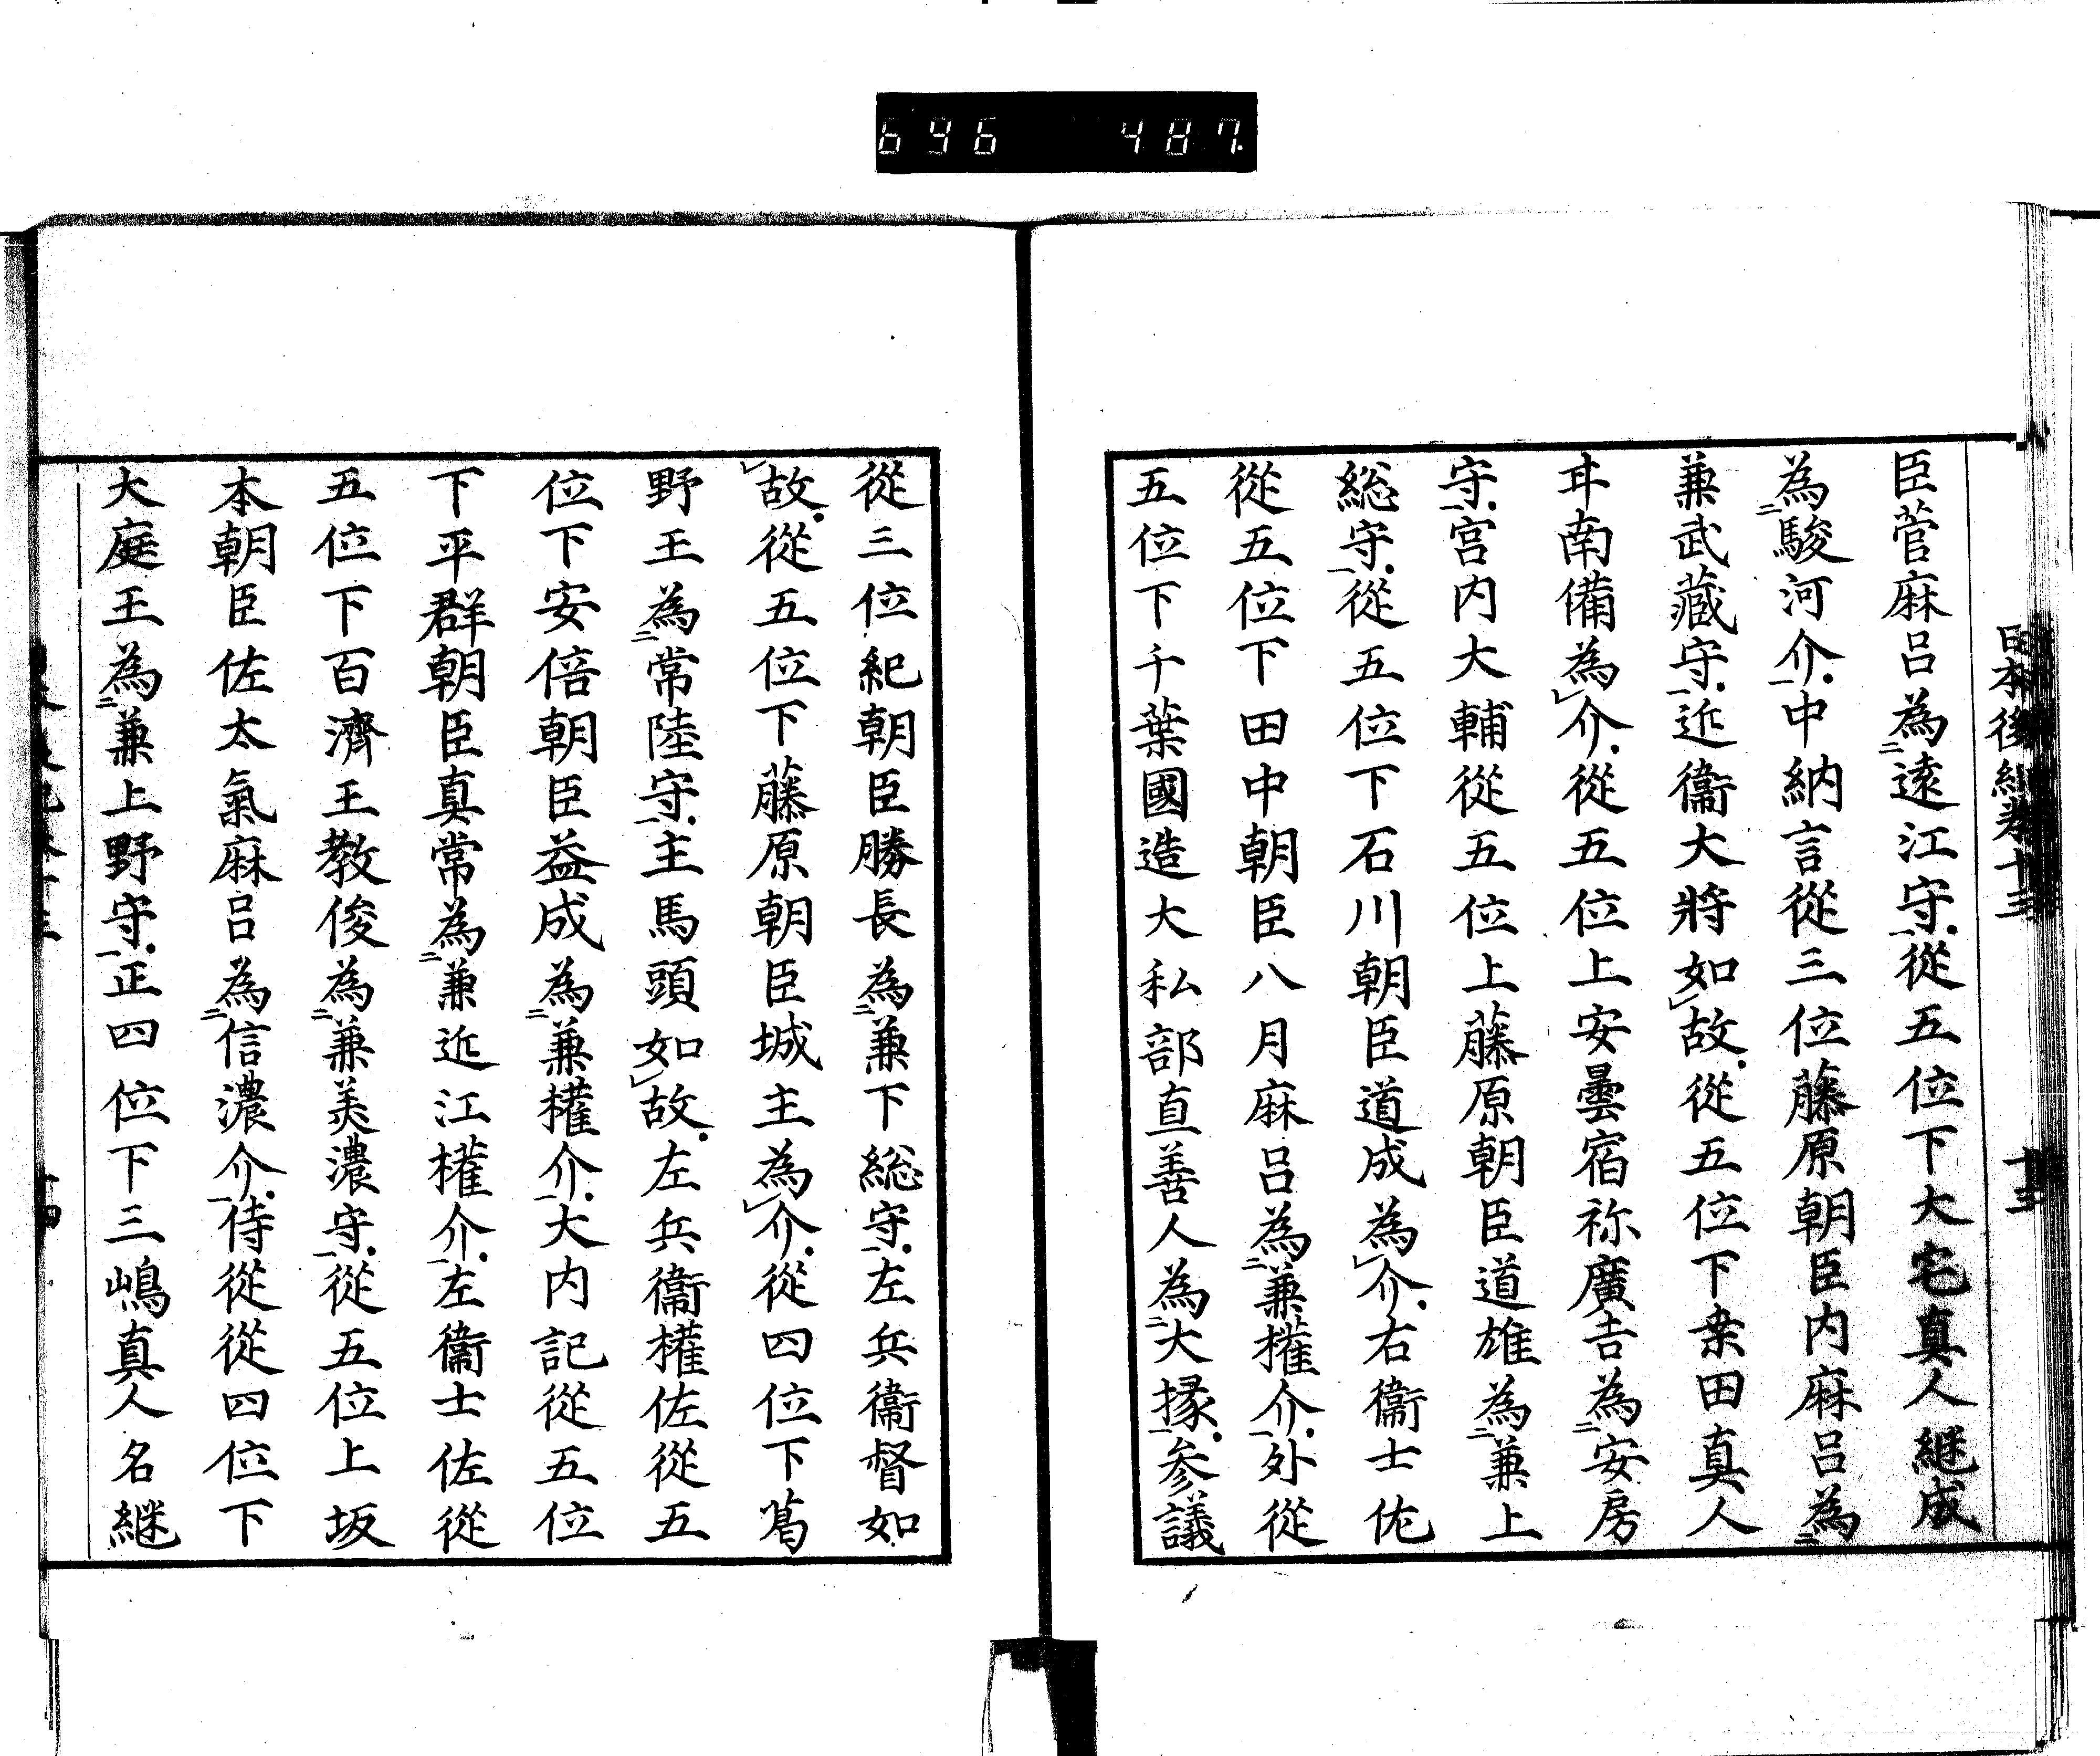 696 487
日本後紀卷十三 十三
臣菅麻呂為二遠江守一從五位下大宅真人継成
為二駿河介一中納言從三位藤原朝臣内麻呂為二
兼武藏守一近衞大將如レ故從五位下桒田真人
甘南備為レ介從五位上安曇宿祢廣吉為二安房
守一宮内大輔從五位上藤原朝臣道雄為二兼上
総守一從五位下石川朝臣道成為レ介右衞士佐
從五位下田中朝臣八月麻呂為二兼權介一外從
五位下千葉國造大私部直善人為二大掾一参議
從三位紀朝臣勝長為二兼下総守一左兵衞督如
レ故從五位下藤原朝臣城主為レ介從四位下葛
野王為二常陸守一主馬頭如レ故左兵衞權佐從五
位下安倍朝臣益成為二兼權介一大内記從五位
下平群朝臣真常為二兼近江權介一左衞士佐從
五位下百濟王教俊為二兼美濃守一從五位上坂
本朝臣佐太氣麻呂為二信濃介一侍從從四位下
大庭王為二兼上野守一正四位下三嶋真人名継